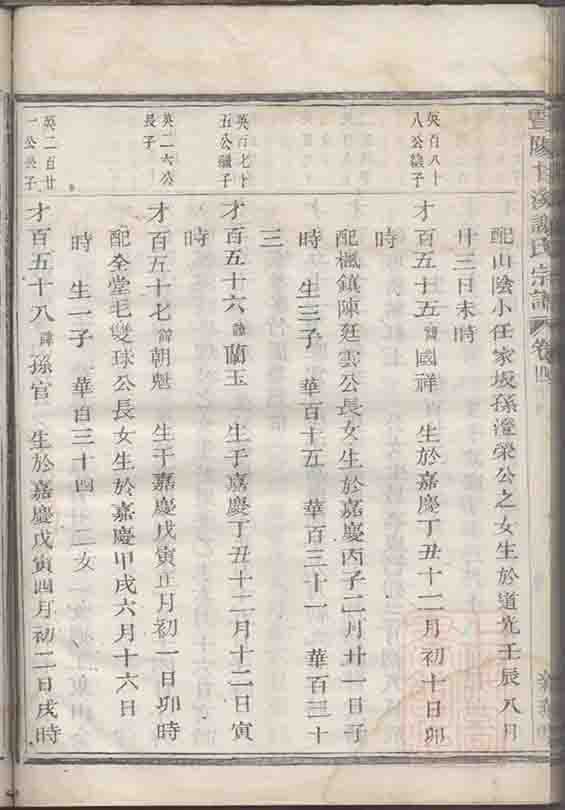 暨陽甘溪謝氏宗譜 卷四
配山陰小任家坂孫瀅榮公之女生於道光壬辰八月
廿三日未時
英百八十
八公繼子
才百五十五 諱國祥 生於嘉慶丁丑十二月初十日卯
時
配楓鎮陳廷雲公長女生於嘉慶丙子二月廿一日子
時 生三子 華百十五 華百三十一 華百三十
三
英百七十
五公繼子
才百五十六 諱蘭玉 生于嘉慶丁丑十二月十二日寅
時
英二六公
長子
才百五十七 諱朝魁 生于嘉慶戊寅正月初一日卯時
配全堂毛雙球公長女生於嘉慶甲戌六月十六日
時 生一子 華百三十四 二女
英二百廿
一公長子
才百五十八 諱孫官 生於嘉慶戊寅四月初二日戌時